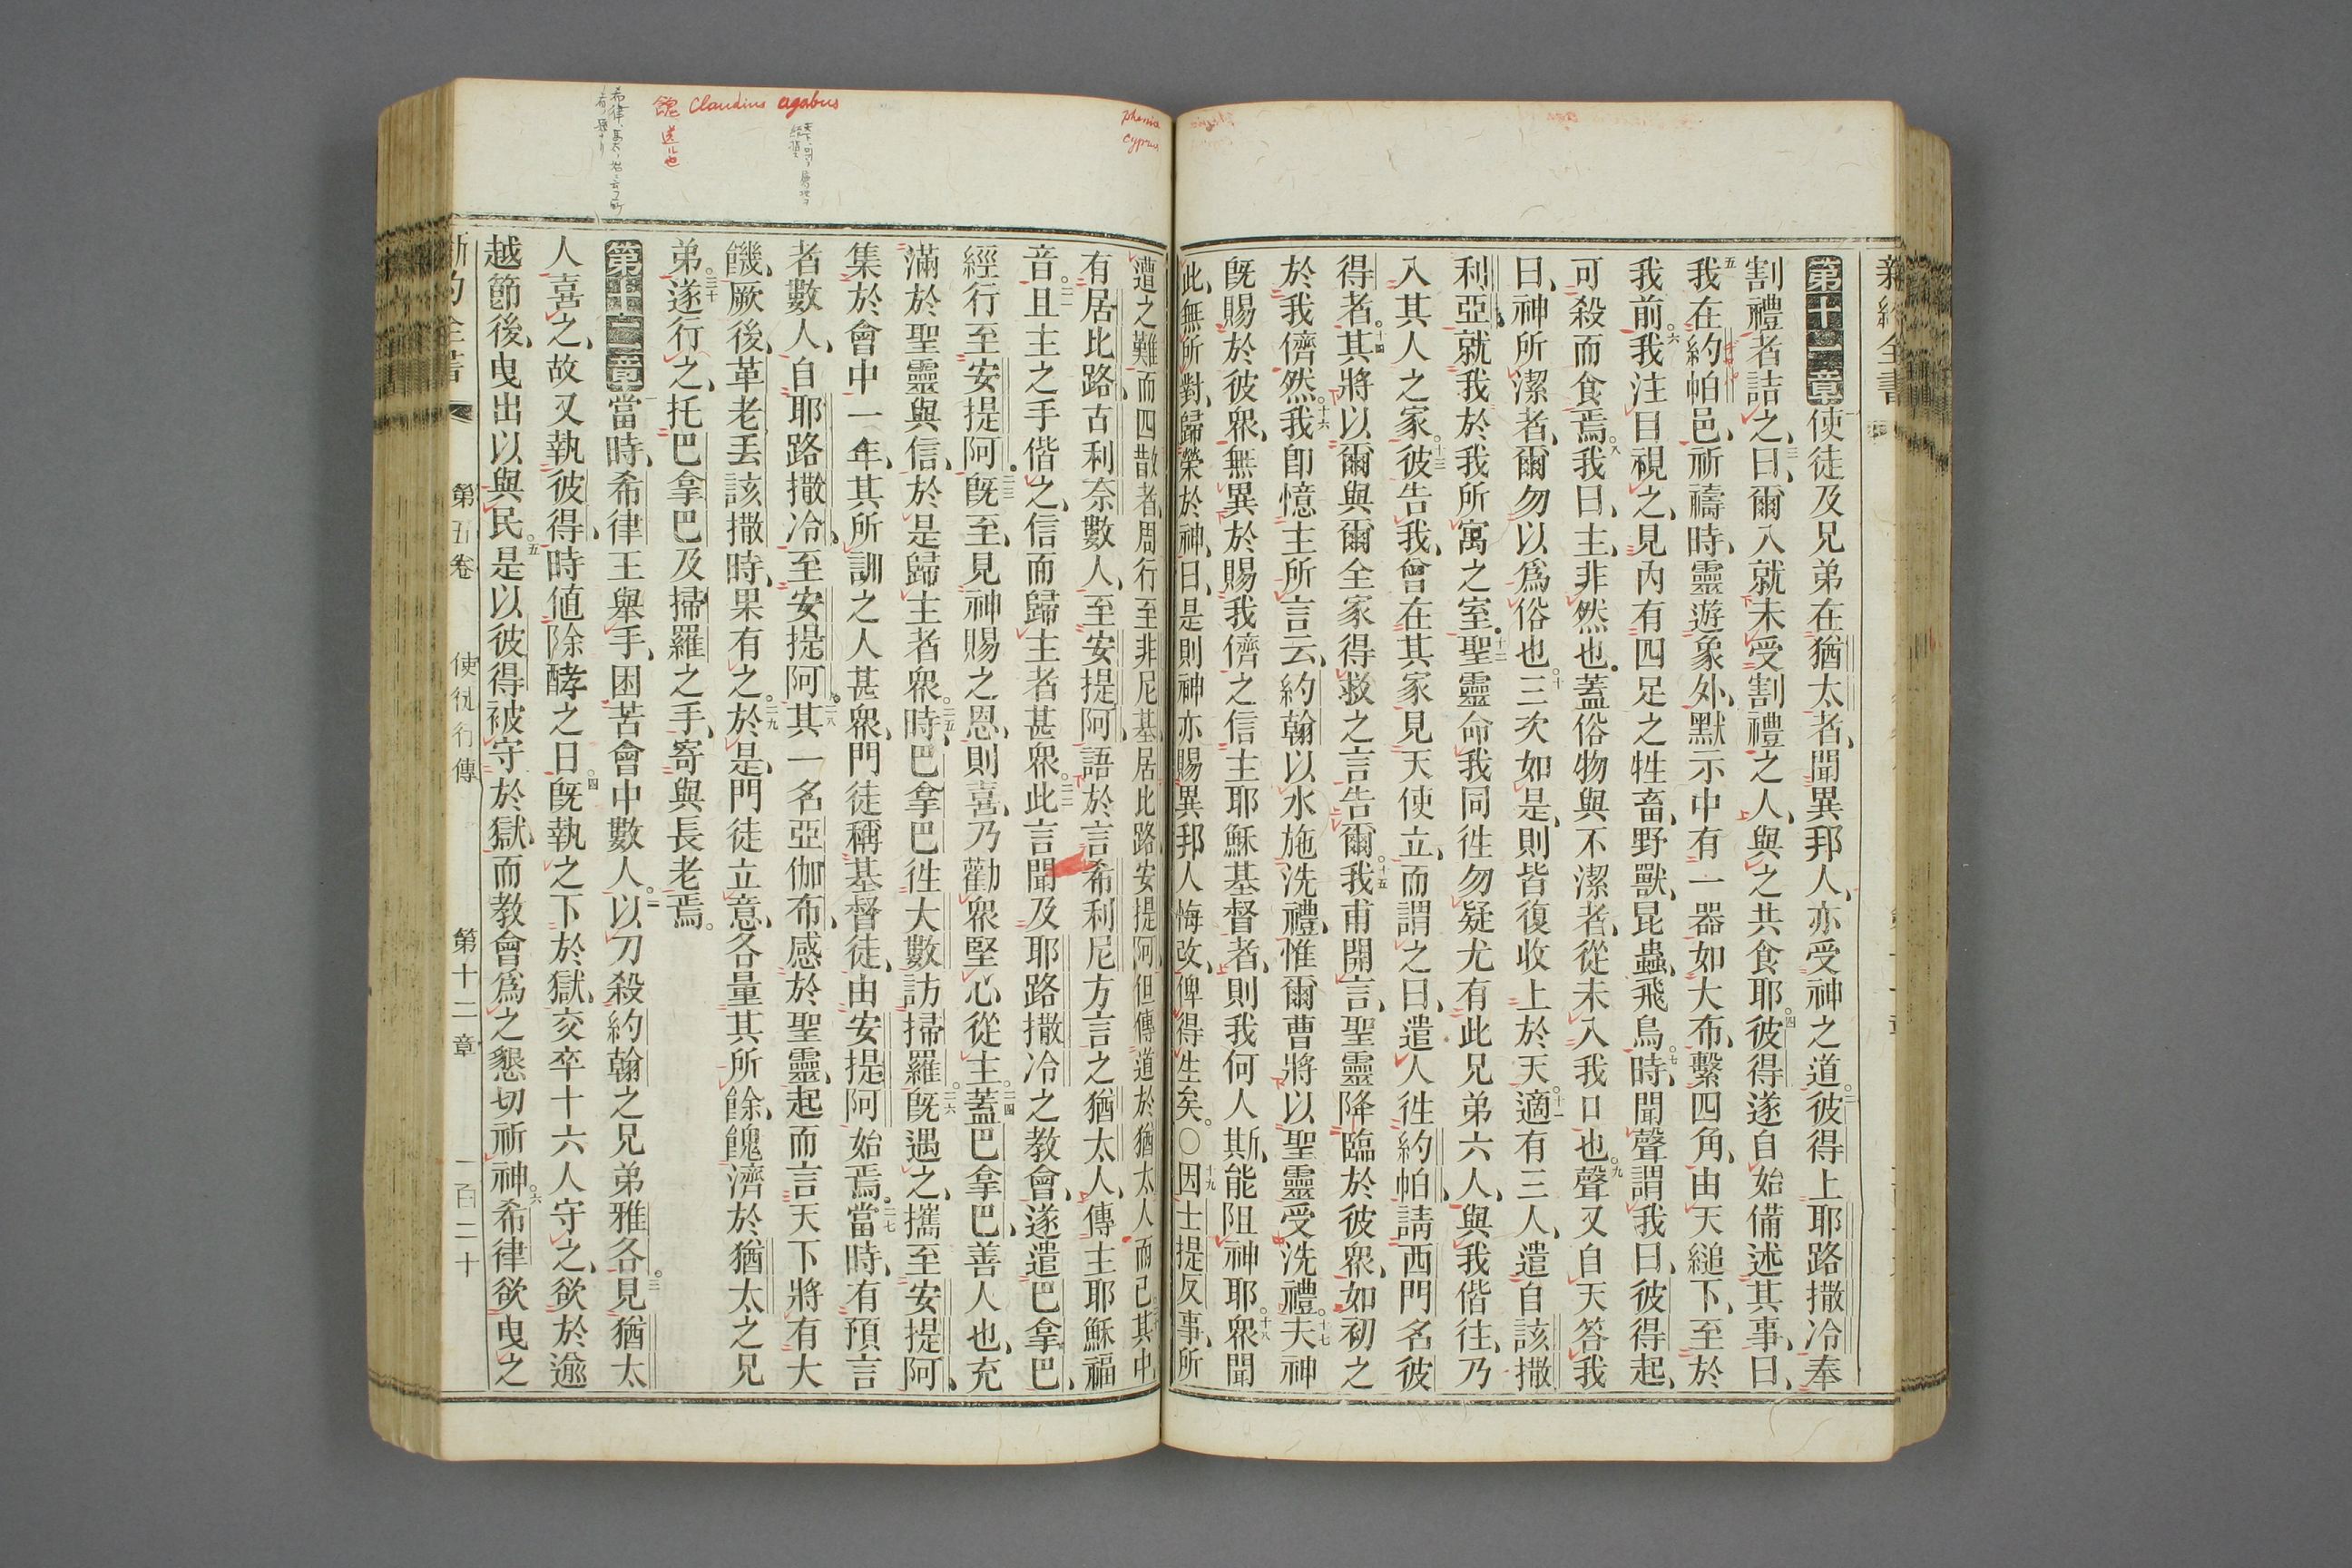 新約全書
第十一章使徒及兄弟在猶太者、聞異邦人、亦受神之道。二彼得上耶路撒冷奉
割禮者詰之、三曰、爾入就未受割禮之人、與之共食耶。四彼得遂自始備述其事、曰、
五我在約帕邑、祈禱時、靈遊象外、默示中有一器如大布、繫四角、由天縋下、至於
我前。六我注目視之、見內有四足之牲畜、野獸、昆蟲、飛鳥。七時、聞聲謂我曰、彼得起、
可殺而食焉。八我曰、主、非然也。蓋俗物與不潔者、從未入我口也。九聲又自天答我
曰、神所潔者、爾勿以爲俗也。十三次如是、則皆復收上於天。十一適有三人、遣自該撒
利亞、就我於我所寓之室。十二聖靈命我同往勿疑尤有此兄弟六人、與我偕往、乃
入其人之家。十三彼告我、曾在其家見天使立、而謂之曰、遣人往約帕、請西門名彼
得者。十四其將以爾與爾全家得救之言告爾。十五我甫開言、聖靈降臨於彼眾、如初之
於我儕然。十六我卽憶主所言云、約翰以水施洗禮、惟爾曹將以聖靈受洗禮。十七夫神
旣賜於彼眾、無異於賜我儕之信主耶穌基督者、則我何人斯、能阻神耶。十八眾聞
此、無所對、歸榮於神、曰、是則神亦賜異邦人悔改、俾得生矣。〇十九因士提反事、所
遭之難、而四散者、周行至非尼基居比路安提阿、但傳道於猶太人而已其中
有居比路、古利奈數人、至安提阿、語於言希利尼方言之猶太人、傳主耶穌福
音。二一且主之手偕之、信而歸主者甚眾。二二此言聞及耶路撒冷之教會、遂遣巴拿巴、
經行至安提阿。二三旣至、見神賜之恩、則喜、乃勸眾堅心從主。二四蓋巴拿巴、善人也、充
滿於聖靈與信、於是歸主者眾。二五時、巴拿巴往大數訪掃羅。二六旣遇之、攜至安提阿、
集於會中一年、其所訓之人甚眾、門徒稱基督徒、由安提阿始焉。二七當時、有預言
者數人、自耶路撒冷、至安提阿。二八其一名亞伽布、感於聖靈、起而言天下將有大
饑、厥後、革老丟該撒時、果有之。二九於是、門徒立意、各量其所餘、餽濟於猶太之兄
弟。三十遂行之、托巴拿巴及掃羅之手、寄與長老焉。
第十二章一當時、希律王舉手、困苦會中數人。二以刀殺約翰之兄弟雅各。三見猶太
人喜之、故又執彼得、時值除酵之日。四旣執之下於獄、交卒十六人守之、欲於逾
越節後、曳出以與民。五是以彼得被守於獄、而教會爲之懇切祈神。六希律欲曳之
新約全書 第五卷 使徒行傳 第十二章 一百二十
Cyprus
agabus
Claudius
餽 送ル也